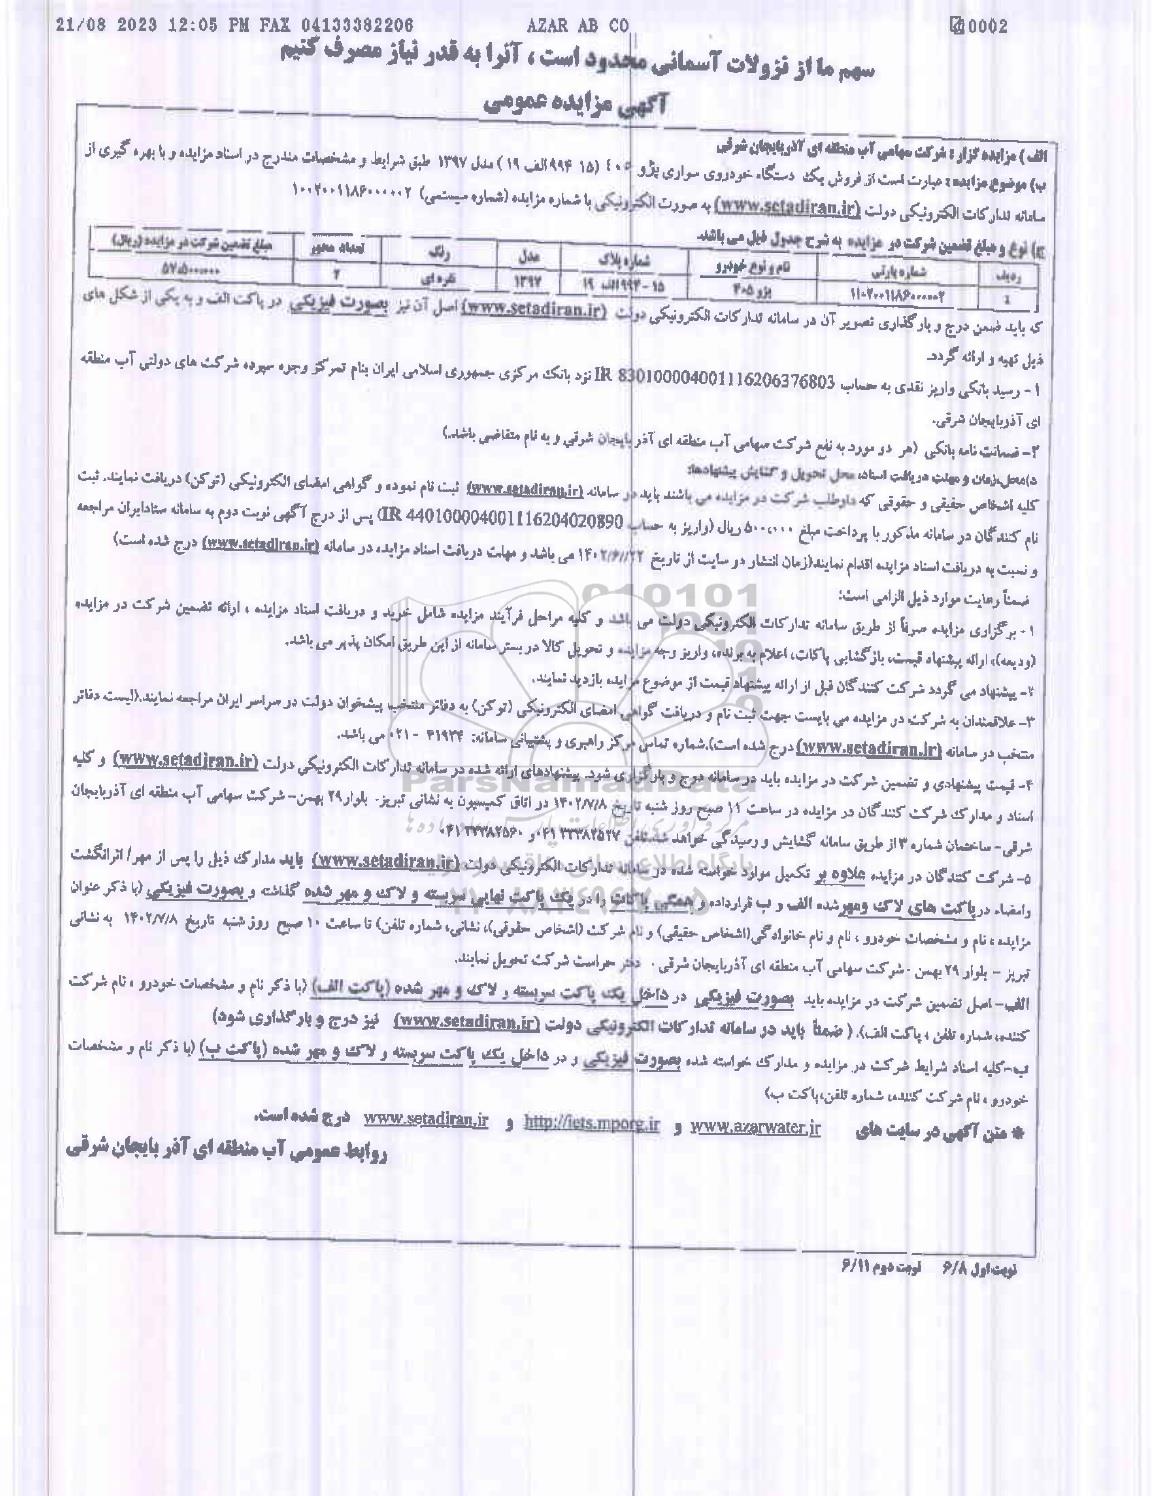 21/08 2023 12:05 PM FAX 04133382206 AZAR AB CO 0002
سهم ما از نزولات آسمانی محدود است ، آنرا به قدر نیاز مصرف کنیم
آگهی مزایده عمومی
الف ) مزایده گزار : شرکت سهامی آب منطقه ای آذربایجان شرقی
ب) موضوع مزایده : عبارت است از فروش یک دستگاه خودروی سواری پژو ٤٠٥ (١٥ ٩٩٤الف ١٩ ) مدل ١٣٩٧ طبق شرایط و مشخصات مندرج در اسناد مزایده و با بهره گیری از
سامانه تدارکات الکترونیکی دولت (www.setadiran.ir) به صورت الکترونیکی با شماره مزایده (شماره سیستمی)
ج) نوع و مبلغ تضمین شرکت در مزایده به شرح جدول ذیل می باشد.
ردیف شماره پارتی نام و نوع خودرو شماره پلاک مدل رنگ تعداد محور مبلغ تضمین شرکت در مزایده (ریال)
١ پژو ۴۰۵ ١٥-٩٩٤الف ١٩ ١٣٩٧ نقره ای ٢
که باید ضمن درج و بارگذاری تصویر آن در سامانه تدارکات الکترونیکی دولت (www.setadiran.ir) اصل آن نیز بصورت فیزیکی در پاکت الف و به یکی از شکل های
ذیل تهیه و ارائه گردد.
١- رسید بانکی واریز نقدی به حساب IR 830100004001116206376803 نزد بانک مرکزی جمهوری اسلامی ایران بنام تمرکز وجوه سپرده شرکت های دولتی آب منطقه
ای آذربایجان شرقی.
٢- ضمانت نامه بانکی (هر دو مورد به نفع شرکت سهامی آب منطقه ای آذربایجان شرقی و به نام متقاضی باشد.)
د)محل،زمان و مهلت دریافت اسناد، محل تحویل و گشایش پیشنهادها:
کلیه اشخاص حقیقی و حقوقی که داوطلب شرکت در مزایده می باشند باید در سامانه (www.setadiran.ir) ثبت نام نموده و گواهی امضای الکترونیکی (توکن) دریافت نمایند. ثبت
نام کنندگان در سامانه مذکور با پرداخت مبلغ ۵۰۰،۰۰۰ ریال (واریز به حساب IR 440100004001116204020890) پس از درج آگهی نوبت دوم به سامانه ستادایران مراجعه
و نسبت به دریافت اسناد مزایده اقدام نمایند(زمان انتشار در سایت از تاریخ می باشد و مهلت دریافت اسناد مزایده در سامانه (www.setadiran.ir) درج شده است)
ضمناً رعایت موارد ذیل الزامی است:
١- برگزاری مزایده صرفاً از طریق سامانه تدارکات الکترونیکی دولت می باشد و کلیه مراحل فرآیند مزایده شامل خرید و دریافت اسناد مزایده ، ارائه تضمین شرکت در مزایده
(ودیعه)، ارائه پیشنهاد قیمت، بازگشایی پاکات، اعلام به برنده، واریز وجه مزایده و تحویل کالا در بستر سامانه از این طریق امکان پذیر می باشد.
٢- پیشنهاد می گردد شرکت کنندگان قبل از ارائه پیشنهاد قیمت از موضوع مزایده بازدید نمایند.
٣- علاقمندان به شرکت در مزایده می بایست جهت ثبت نام و دریافت گواهی امضای الکترونیکی (توکن) به دفاتر منتخب پیشخوان دولت در سراسر ایران مراجعه نمایند.(لیست دفاتر
منتخب در سامانه (www.setadiran.ir) درج شده است).شماره تماس مرکز راهبری و پشتیبانی سامانه: ۴۱۹۳۴ - ۰۲۱ می باشد.
۴- قیمت پیشنهادی و تضمین شرکت در مزایده باید در سامانه درج و بارگزاری شود. پیشنهادهای ارائه شده در سامانه تدارکات الکترونیکی دولت (www.setadiran.ir) و کلیه
اسناد و مدارک شرکت کنندگان در مزایده در ساعت ١١ صبح روز شنبه تاریخ ١٤٠٢/٧/٨ در اتاق کمیسیون به نشانی تبریز- بلوار ٢٩ بهمن- شرکت سهامی آب منطقه ای آذربایجان
شرقی- ساختمان شماره ٣ از طریق سامانه گشایش و رسیدگی خواهد شد.تلفن
۵- شرکت کنندگان در مزایده علاوه بر تکمیل موارد خواسته شده در سامانه تدارکات الکترونیکی دولت (www.setadiran.ir) باید مدارک ذیل را پس از مهر/ اثرانگشت
وامضاء در پاکت های لاک ومهرشده الف و ب قرارداده و همگی پاکات را در یک پاکت نهایی سربسته و لاک و مهر شده گذاشته و بصورت فیزیکی (با ذکر عنوان
مزایده ، نام و مشخصات خودرو ، نام و نام خانوادگی(اشخاص حقیقی) و نام شرکت (اشخاص حقوقی)، نشانی، شماره تلفن) تا ساعت ١٠ صبح روز شنبه تاریخ ١٤٠٢/٧/٨ به نشانی
تبریز – بلوار ٢٩ بهمن -شرکت سهامی آب منطقه ای آذربایجان شرقی - دفتر حراست شرکت تحویل نمایند.
الف- اصل تضمین شرکت در مزایده باید بصورت فیزیکی در داخل یک پاکت سربسته و لاک و مهر شده (پاکت الف) (با ذکر نام و مشخصات خودرو ، نام شرکت
کننده، شماره تلفن ، پاکت الف). ( ضمناً باید در سامانه تدارکات الکترونیکی دولت (www.setadiran.ir) نیز درج و بارگذاری شود)
ب-کلیه اسناد شرایط شرکت در مزایده و مدارک خواسته شده بصورت فیزیکی و در داخل یک پاکت سربسته و لاک و مهر شده (پاکت ب) (با ذکر نام و مشخصات
خودرو ، نام شرکت کننده، شماره تلفن،پاکت ب)
* متن آگهی در سایت های www.azarwater.ir و http://iets.mporg.ir و www.setadiran.ir درج شده است.
روابط عمومی آب منطقه ای آذربایجان شرقی
نوبت اول ۶/۸ نوبت دوم ۶/۱۱
ParsNamadData